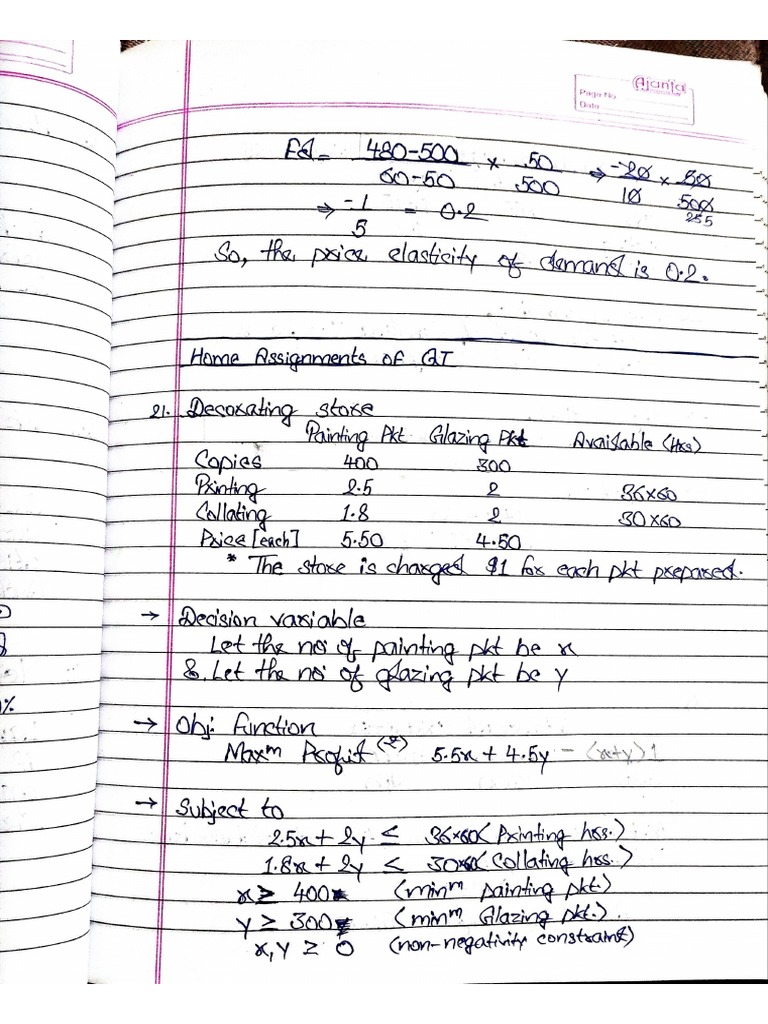 Ajanta
Page No.
Date
Ed = 480-500 / 60-50 × 50 / 500 ⇒ -20 / 10 × 50 / 500
255
⇒ -1 / 5 = 0.2
So, the price elasticity of demand is 0.2.
Home Assignments of QT
21. Decorating store
Painting Pkt Glazing Pkt Available (Hrs)
Copies 400 300
Printing 2.5 2 36×60
Collating 1.8 2 30×60
Price [each] 5.50 4.50
* The store is charged $1 for each pkt prepared.
→ Decision variable
Let the no of painting pkt be x
&. Let the no of glazing pkt be y
→ Obj. function
Maxm Profit (z) 5.5x + 4.5y - (x+y)1
→ Subject to
2.5x + 2y ≤ 36×60 (Printing hrs.)
1.8x + 2y ≤ 30×60 (Collating hrs.)
x ≥ 400 (minm painting pkt.)
y ≥ 300 (minm Glazing pkt.).
x, y ≥ 0 (non-negativity constraint)